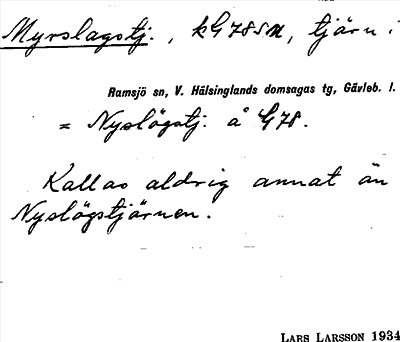 Myrslagstj., kG78SN, tjärn i
Ramsjö sn, V. Hälsinglands domsagas tg, Gävleb. l.
= Nyslögstj. å G78.
Kallas aldrig annat än
Nyslögstjärnen.
LARS LARSSON 1934